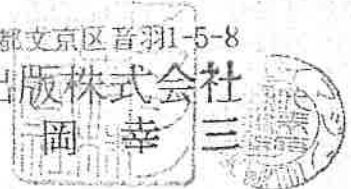 都文京区音羽1-5-8
出版株式会社
岡幸三